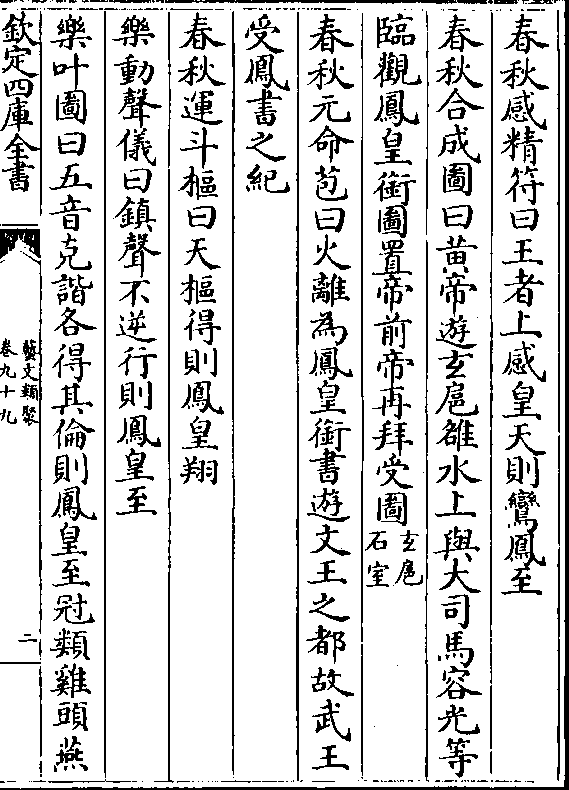 春秋感精符曰王者上感皇天則鸞鳳至
春秋合成圖曰黄帝遊玄扈雒水上與大司馬容光等
臨觀鳳皇銜圖置帝前帝再拜受圖玄扈石室
春秋元命苞曰火離為鳳皇銜書遊文王之都故武王
受鳳書之紀
春秋運斗樞曰天樞得則鳳皇翔
樂動聲儀曰鎮聲不逆行則鳳皇至
樂叶圖曰五音克諧各得其倫則鳳皇至冠類雞頭燕
欽定四庫全書
藝文類聚
卷九十九
二